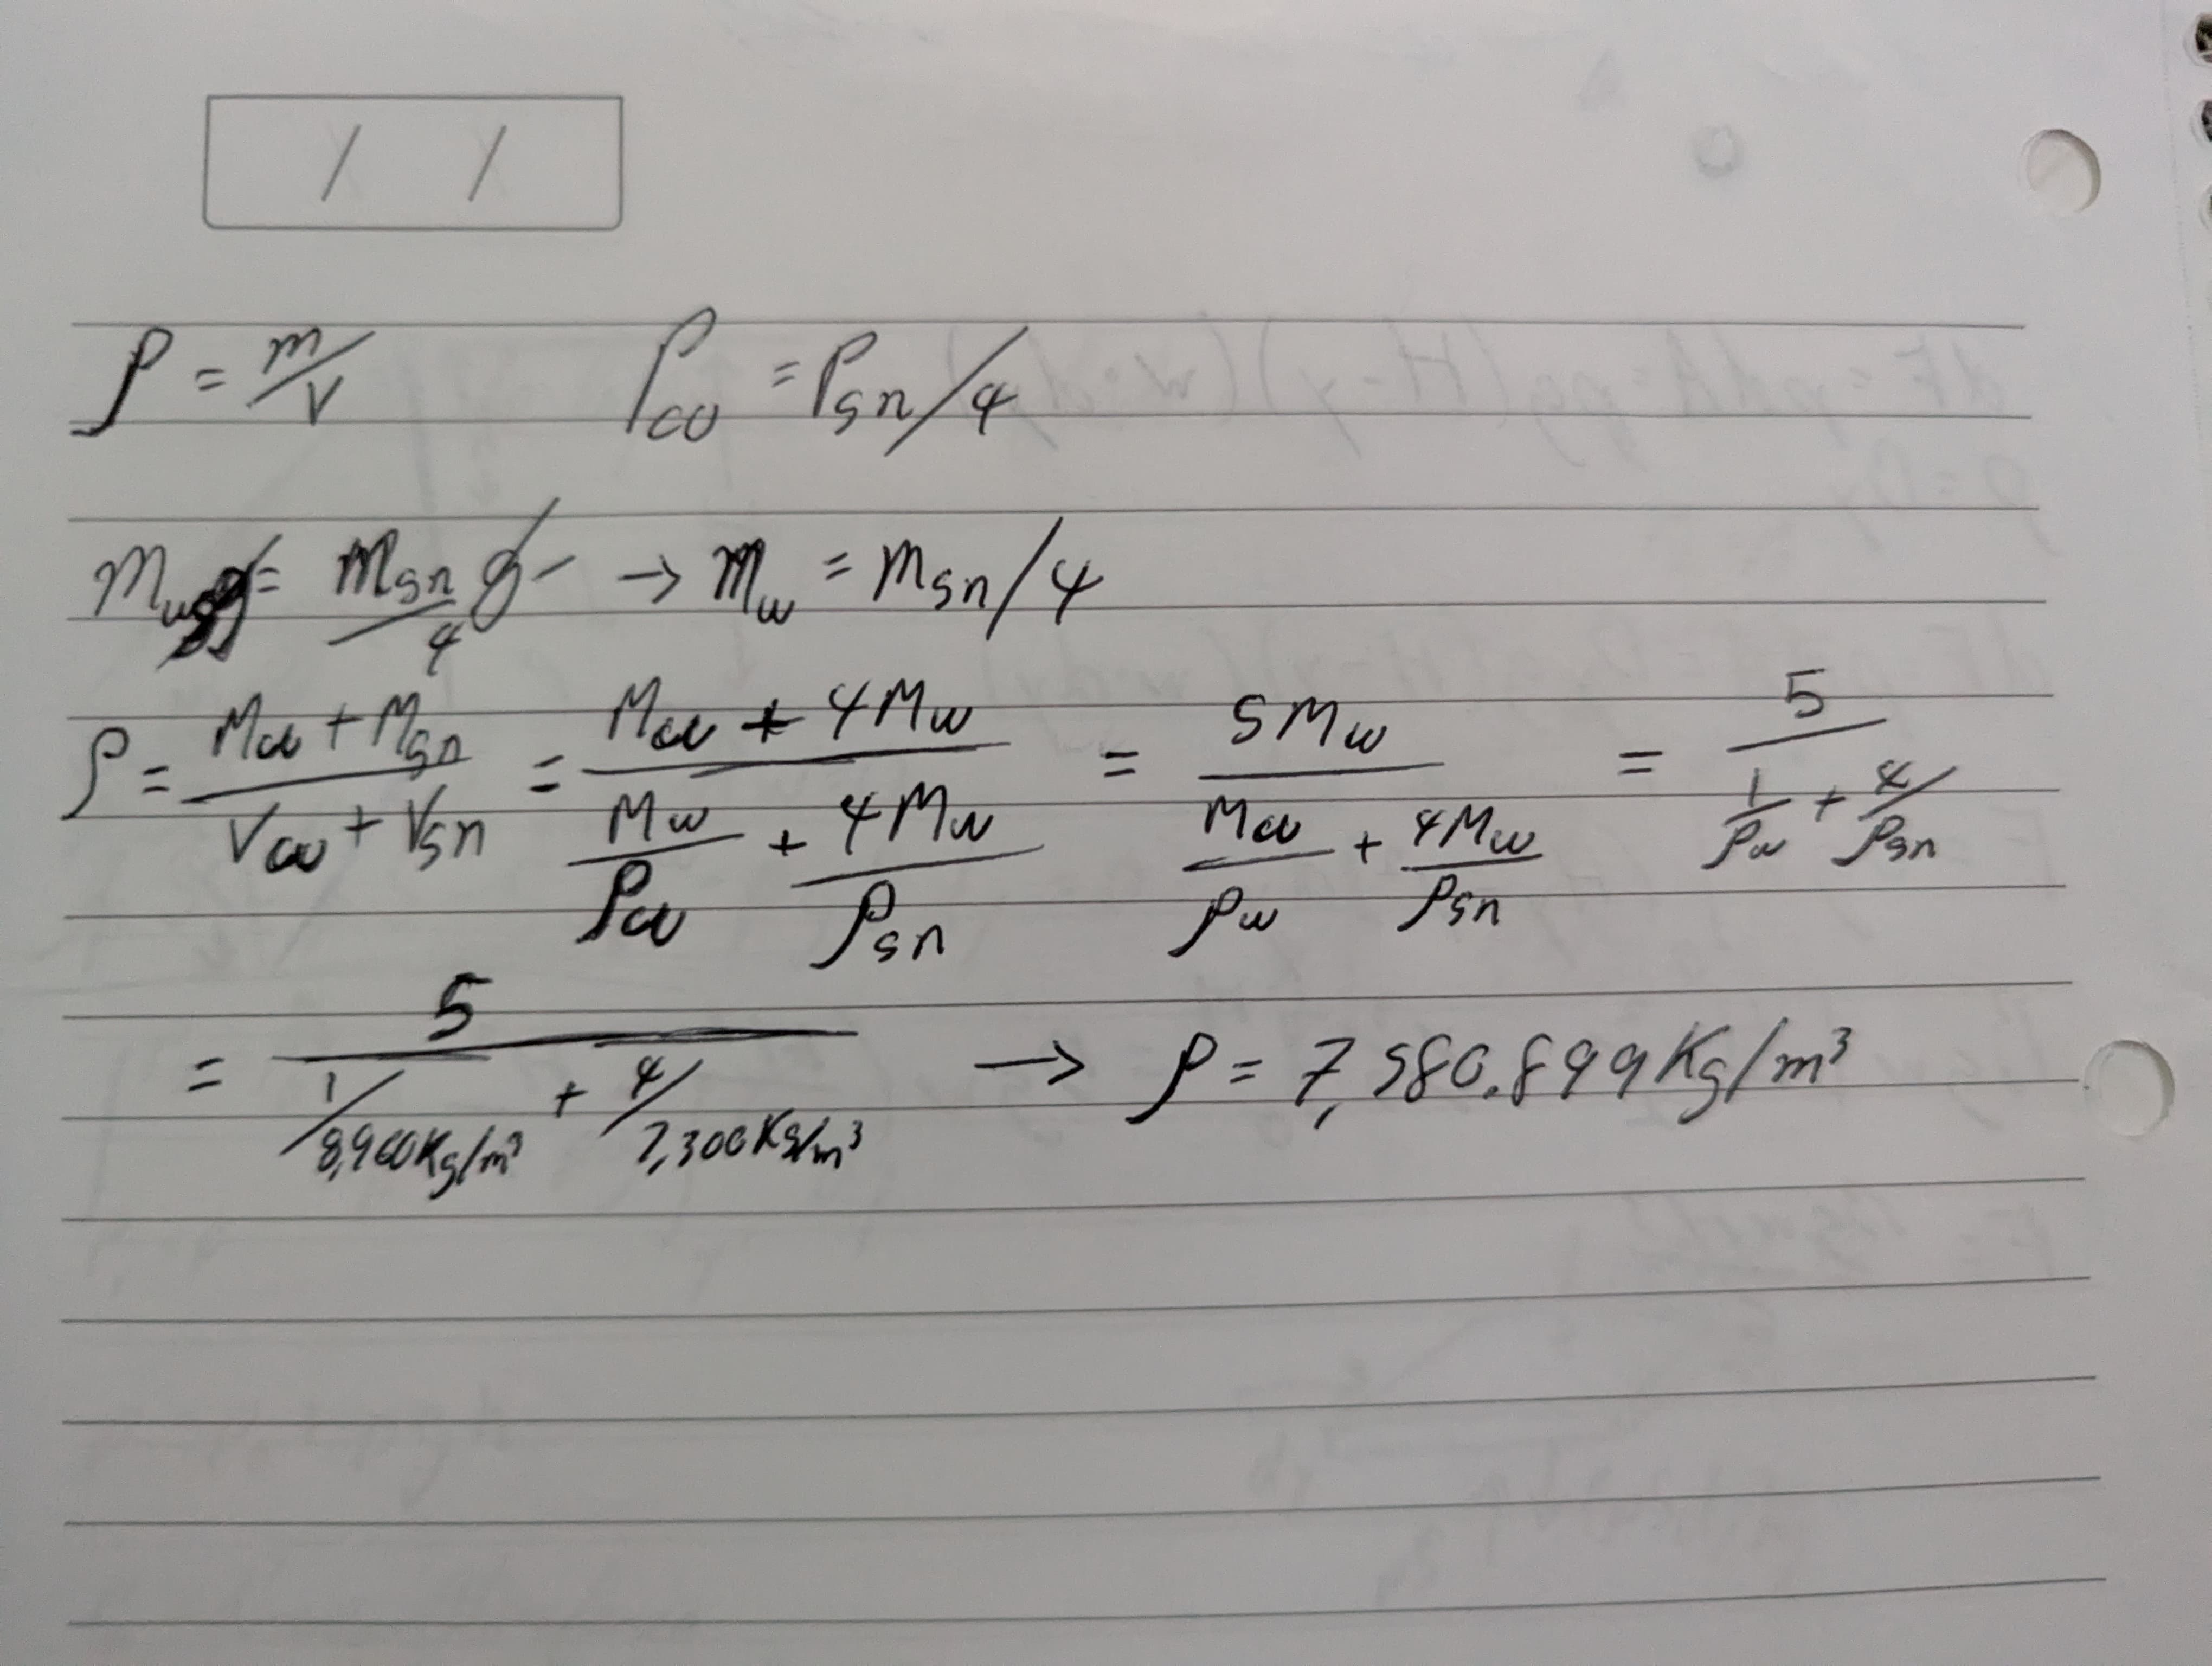 / /
ρ = m/V ρcu = ρsn/4
mcu g = msn/4 g → mcu = msn/4
ρ = (mcu + msn)/(Vcu + Vsn) = (mcu + 4mcu)/(mcu/ρcu + 4mcu/ρsn) = 5mcu/(mcu/ρcu + 4mcu/ρsn) = 5/(1/ρcu + 4/ρsn)
= 5/(1/8,960Kg/m³ + 4/7,300Kg/m³) → ρ = 7,580.899Kg/m³